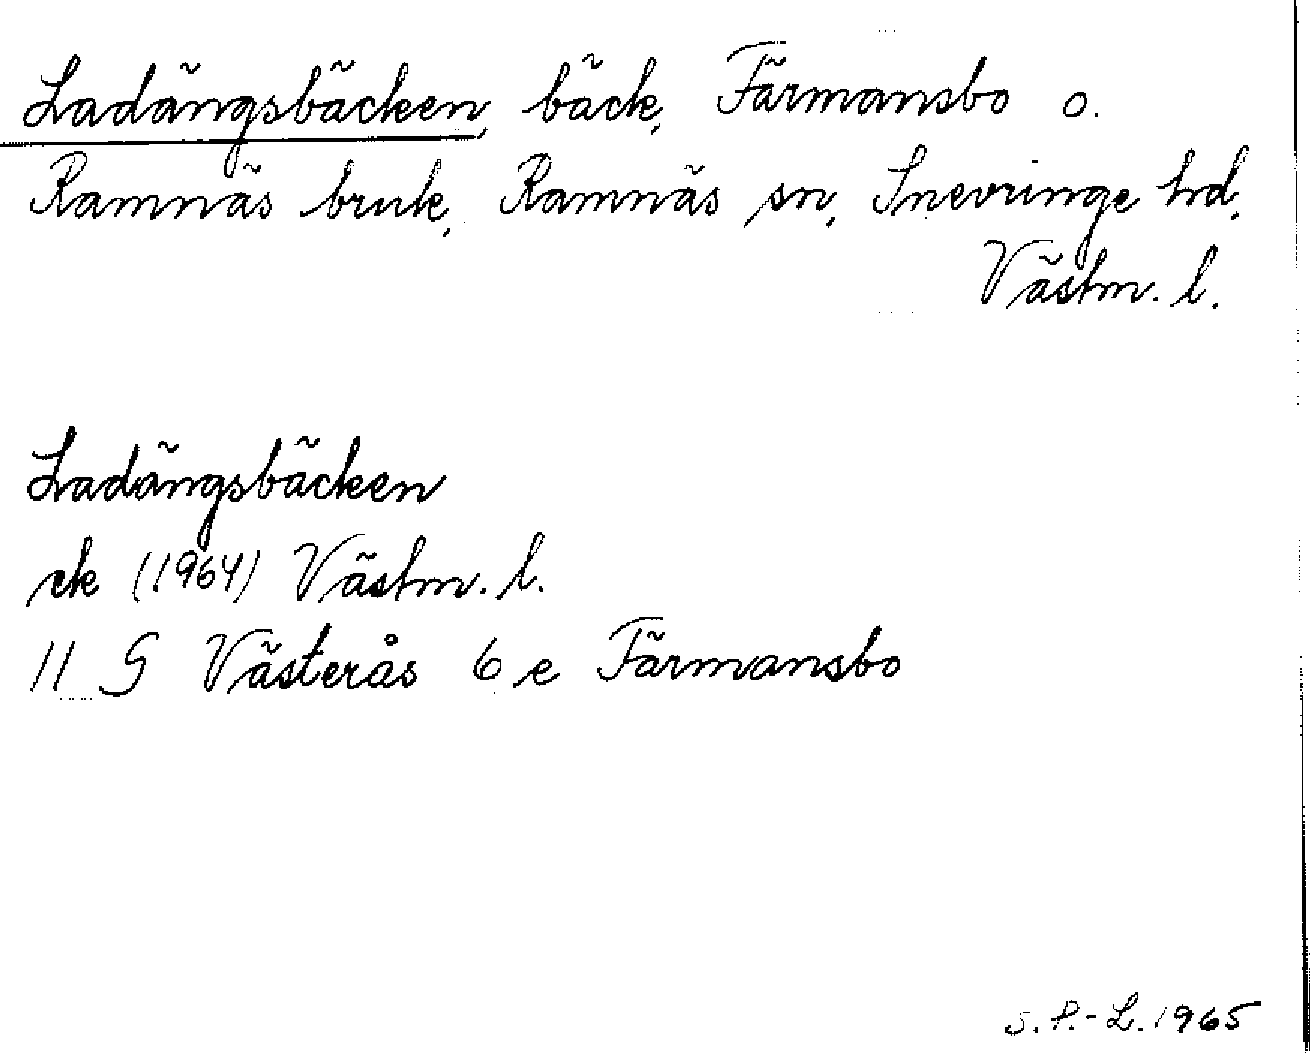 Ladängsbäcken, bäck, Färmansbo o.
Ramnäs bruk, Ramnäs sn, Snevringe hd,
Västm. l.
Ladängsbäcken
ek (1964) Västm. l.
11 G Västerås 6 e Färmansbo
S. P.-L. 1965